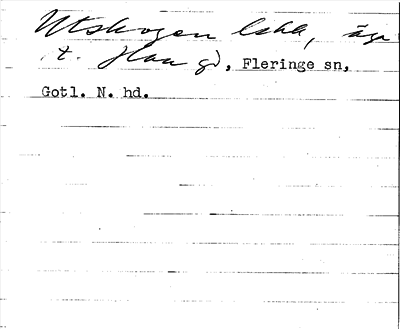 Utskogen lokal, äga
t. Hau gd, Fleringe sn,
Gotl. N. hd.